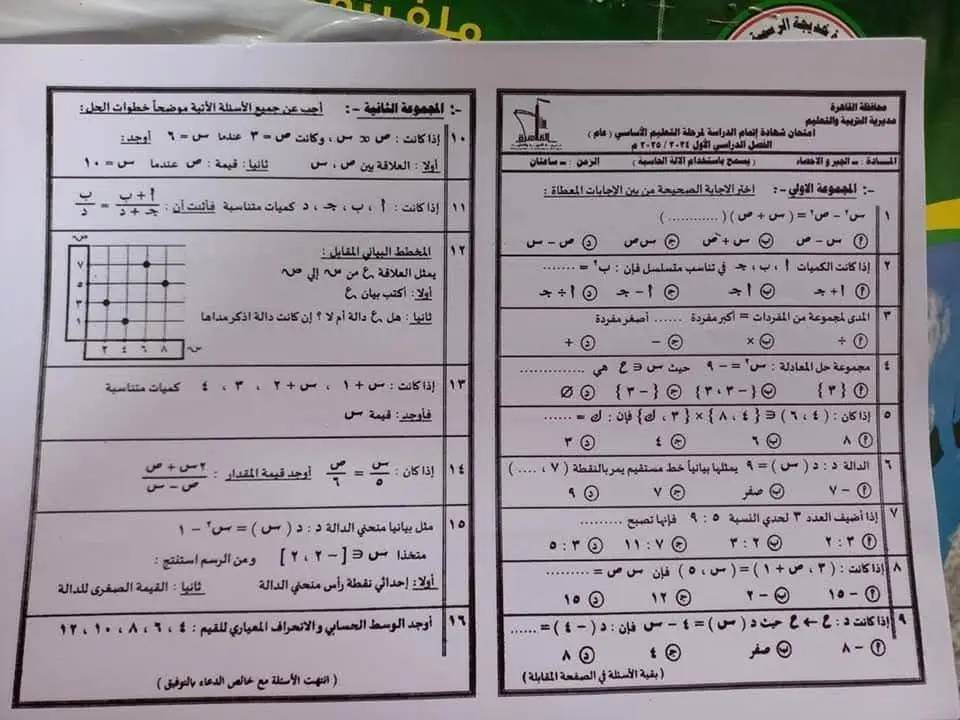 محافظة القاهرة
مديرية التربية والتعليم
امتحان شهادة إتمام الدراسة لمرحلة التعليم الأساسي ( عام )
الفصل الدراسي الأول ٢٠٢٤ / ٢٠٢٥ م
القاهرة
المــادة : ــ الجبر و الاحصاء ( يسمح باستخدام الآلة الحاسبة ) الزمن : ــ ساعتان
المجموعة الاولي -: اختر الاجابة الصحيحة من بين الإجابات المعطاة :
١ س² − ص² = ( س + ص ) ( ............ )
أ س − ص ب س + ص ج س ص د ص − س
٢ إذا كانت الكميات أ ، ب ، جـ في تناسب متسلسل فإن : ب² = .......
أ أ + جـ ب أ جـ ج أ − جـ د أ ÷ جـ
٣ المدى لمجموعة من المفردات = أكبر مفردة ...... أصغر مفردة
أ ÷ ب × ج − د +
٤ مجموعة حل المعادلة : س² = − ٩ حيث س ∈ ع هي .............
أ { ٣ } ب { − ٣ ، ٣ } ج { − ٣ } د ∅
٥ إذا كان : ( ٤ ، ٦ ) ∈ { ٤ ، ٨ } × { ٣ ، ك } فإن : ك = ......
أ ٨ ب ٦ ج ٤ د ٣
٦ الدالة د : د ( س ) = ٩ يمثلها بيانياً خط مستقيم يمر بالنقطة ( ٧ ، .... )
أ − ٧ ب صفر ج ٧ د ٩
٧ إذا أضيف العدد ٣ لحدي النسبة ٥ : ٩ فإنها تصبح .........
أ ٣ : ٢ ب ٢ : ٣ ج ٧ : ١١ د ٣ : ٥
٨ إذا كانت : ( ٣ ، ص + ١ ) = ( س ، ٥ ) فإن س ص = .........
أ − ١٥ ب − ٢ ج ١٢ د ١٥
٩ إذا كانت د : ع ← ع حيث د ( س ) = ٤ − س فإن : د ( − ٤ ) = ......
أ − ٨ ب صفر ج ٤ د ٨
( بقية الأسئلة في الصفحة المقابلة )
المجموعة الثانية -: أجب عن جميع الأسئلة الأتية موضحاً خطوات الحل :
١٠ إذا كانت : ص ∝ س ، وكانت ص = ٣ عندما س = ٦ أوجد :
أولا : العلاقة بين ص ، س ثانيا : قيمة : ص عندما س = ١٠
١١ إذا كانت : أ ، ب ، جـ ، د كميات متناسبة فأثبت أن : (أ + ب)/(جـ + د) = ب/د
١٢ المخطط البياني المقابل :
يمثل العلاقة ع من سـ إلي صـ
أولا : أكتب بيان ع
ثانيا : هل ع دالة أم لا ؟ إن كانت دالة اذكر مداها
صـ
٧
٥
٣
١
٢ ٤ ٦ ٨ سـ
١٣ إذا كانت : س + ١ ، س + ٢ ، ٣ ، ٤ كميات متناسبة
فأوجد : قيمة س
١٤ إذا كان : س/٥ = ص/٦ أوجد قيمة المقدار : (٢س + ص)/(ص − س)
١٥ مثل بيانيا منحني الدالة د : د ( س ) = س² − ١
متخذا س ∈ [ − ٢ ، ٢ ] ومن الرسم استنتج :
أولا : إحداثي نقطة رأس منحني الدالة ثانيا : القيمة الصغرى للدالة
١٦ أوجد الوسط الحسابي والانحراف المعياري للقيم : ٤ ، ٦ ، ٨ ، ١٠ ، ١٢
( انتهت الأسئلة مع خالص الدعاء بالتوفيق )